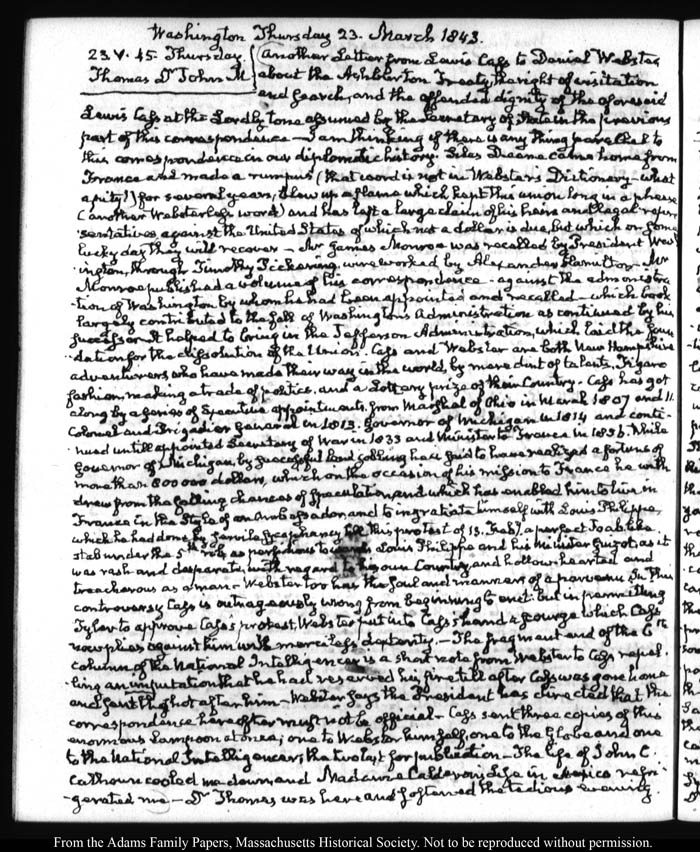 Washington Thursday 23. March 1843.
23. V. 45. Thursday. Another Letter from Lewis Cass to Daniel Webster
Thomas Dr John M about the Ashburton Treaty, the right of visitation
and search, and the offended dignity of the aforesaid
Lewis Cass at the Lordly tone assumed by the Secretary of State in the previous
part of this correspondence — I am thinking if there is any thing parallel to
this correspondence in our diplomatic history. Silas Deane came home from
France and made a rumpus (that word is not in Webster's Dictionary — what
a pity!) for several years, blow up a flame which kept this union long in a phease
(another Websterless word) and has left a large claim of his heirs and legal repre-
sentatives against the United States of which not a dollar is due, but which on some
lucky day they will recover — Mr James Monroe was recalled by President Wash-
ington, through Timothy Pickering, wire worked by Alexander Hamilton. Mr
Monroe published a volume of his correspondence — against the administra-
tion of Washington by whom he had been appointed and recalled — which book
largely contributed to the fall of Washington's Administration as continued by his
successor. It helped to bring in the Jefferson Administration, which laid the foun-
dation for the dissolution of the Union. Cass and Webster are both New Hampshire
adventurers, who have made their way in the world, by mere dint of talents, Figaro
fashion, making a trade of politics, and a Lottery prize of their Country — Cass has got
along by a series of Executive appointments, from Marshal of Ohio in March 1807 and 11.
Colonel and Brigadier General in 1813. Governor of Michigan in 1814 and conti-
nued untill appointed Secretary of War in 1833 and Minister to France in 1836. While
Governor of Michigan, by successful land jobbing he is said to have realized a fortune of
more than 800 000 dollars, which on the occasion of his mission to France he with
drew from the falling chances of speculation, and which has enabled him to live in
France in the style of an Ambassador, and to ingratiate himself with Louis Philippe,
which he had done by servile sycophancy till this protest of 13. Feby, a perfect Joab like
stab under the 5th rib, as perfidious towards Louis Philippe and his minister Guizot, as it
was rash and desperate, with regard to his own Country, and hollow-hearted and
treacherous as a man. Webster too has the soul and manners of a parvenu. In this
controversy Cass is outrageously wrong from beginning to end: but in permitting
Tyler to approve Cass's protest, Webster put into Cass's hand a scourge which Cass
now plies against him with merciless dexterity. — The fragment end of the 6th
column of the National Intelligencer is a short note from Webster to Cass repel-
ling an imputation that he had reserved his fire till after Cass was gone home
and sent the shot after him — Webster says the President has directed that this
correspondence hereafter must not be official — Cass sent three copies of this
enormous Lampoon at once; one to Webster himself, one to the Globe and one
to the National Intelligencer; the two last for publication — The life of John C.
Calhoun cooled me down, and Madame Calderon's Life in Mexico refri-
gerated me — Dr Thomas was here and softened the tedious evening.
From the Adams Family Papers, Massachusetts Historical Society. Not to be reproduced without permission.